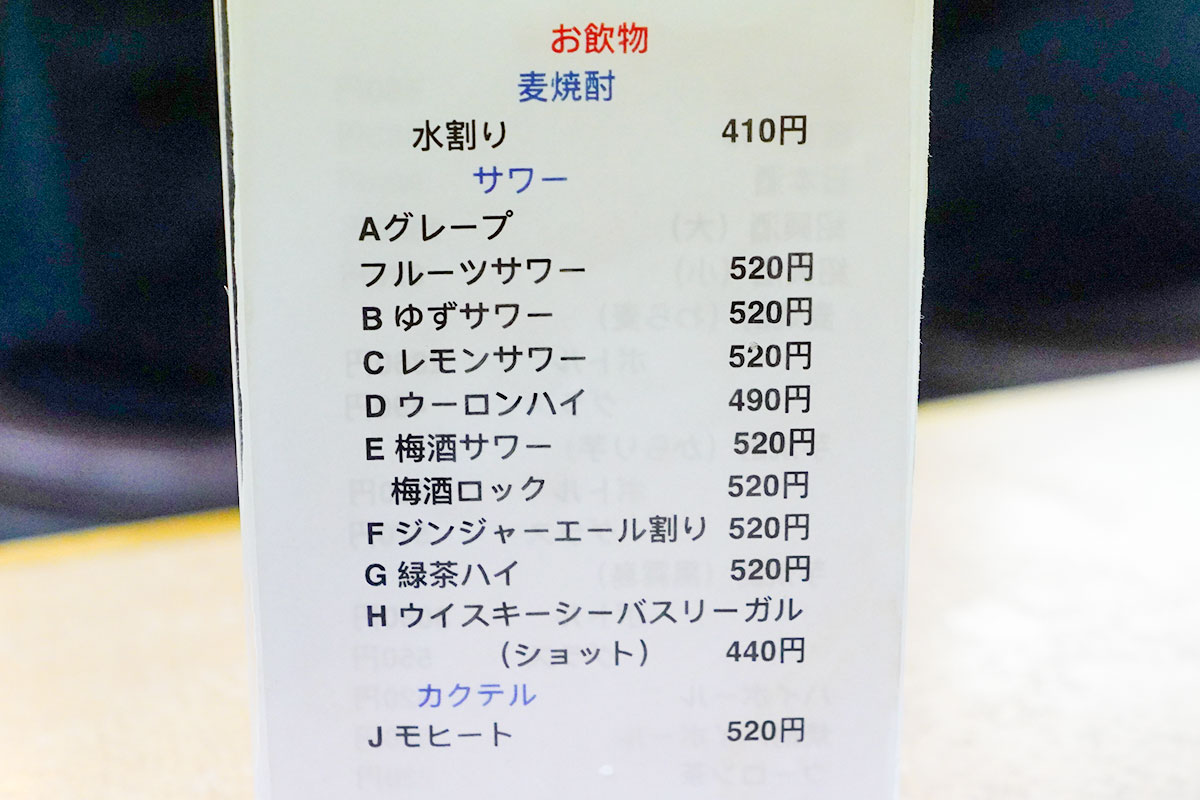 お飲物
麦焼酎
水割り 410円
サワー
Aグレープ
フルーツサワー 520円
B ゆずサワー 520円
C レモンサワー 520円
D ウーロンハイ 490円
E 梅酒サワー 520円
梅酒ロック 520円
F ジンジャーエール割り 520円
G 緑茶ハイ 520円
H ウイスキーシーバスリーガル
（ショット） 440円
カクテル
J モヒート 520円